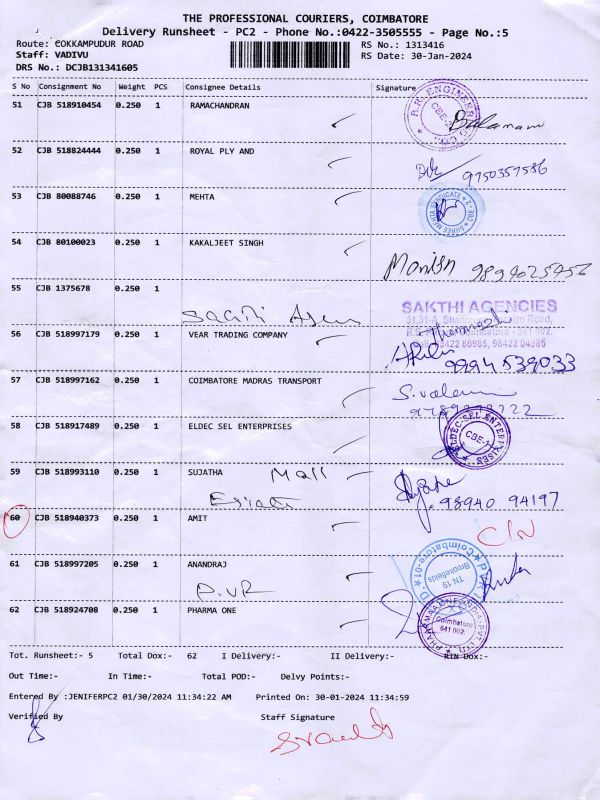 THE PROFESSIONAL COURIERS, COIMBATORE
Delivery Runsheet - PC2 - Phone No.:0422-3505555 - Page No.:5
Route: COKKAMPUDUR ROAD RS No.: 1313416
Staff: VADIVU RS Date: 30-Jan-2024
DRS No.: DCJB131341605
S No Consignment No Weight PCS Consignee Details Signature
51 CJB 518910454 0.250 1 RAMACHANDRAN
52 CJB 518824444 0.250 1 ROYAL PLY AND 9750357586
53 CJB 80088746 0.250 1 MEHTA
54 CJB 80100023 0.250 1 KAKALJEET SINGH Monish
55 CJB 1375678 0.250 1 SAKTHI AGENCIES
56 CJB 518997179 0.250 1 VEAR TRADING COMPANY 9994539033
57 CJB 518997162 0.250 1 COIMBATORE MADRAS TRANSPORT
58 CJB 518917489 0.250 1 ELDEC SEL ENTERPRISES ELDEC SEL ENTERPRISES CBE-1
59 CJB 518993110 0.250 1 SUJATHA Mall 98940 94197
60 CJB 518940373 0.250 1 AMIT
61 CJB 518997205 0.250 1 ANANDRAJ Coimbatore-01 TN 19 Brookefields
62 CJB 518924708 0.250 1 PHARMA ONE Coimbatore 641 002
Tot. Runsheet:- 5 Total Dox:- 62 I Delivery:- II Delivery:- RIN Dox:-
Out Time:- In Time:- Total POD:- Delvy Points:-
Entered By :JENIFERPC2 01/30/2024 11:34:22 AM Printed On: 30-01-2024 11:34:59
Verified By Staff Signature